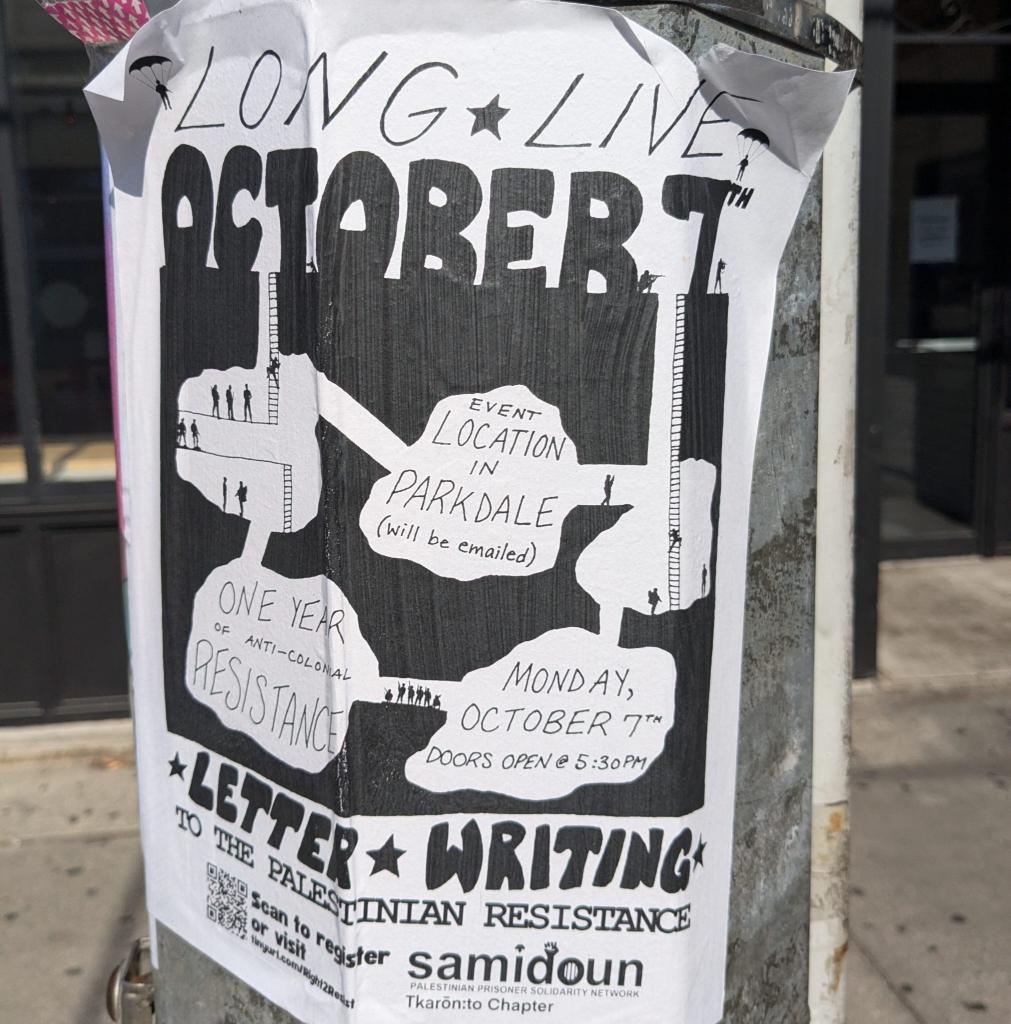 LONG ★ LIVE
OCTOBER 7TH
EVENT
LOCATION
IN
PARKDALE
(will be emailed)
ONE YEAR
OF ANTI-COLONIAL
RESISTANCE
MONDAY,
OCTOBER 7TH
DOORS OPEN @ 5:30PM
★ LETTER ★ WRITING ★
TO THE PALESTINIAN RESISTANCE
Scan to register
or visit
tinyurl.com/Right2Resist
samidoun
PALESTINIAN PRISONER SOLIDARITY NETWORK
Tkarón:to Chapter